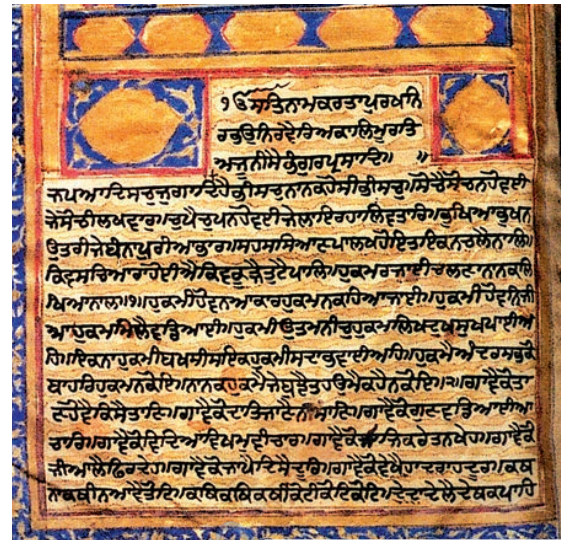 ੴਸਤਿਨਾਮਕਰਤਾਪੁਰਖਨਿ
ਰਭਉਨਿਰਵੈਰਿਅਕਾਲਿਮੂਰਤਿ
ਅਜੂਨੀਸੈਭੰਗੁਰਪ੍ਰਸਾਦਿ॥ ॥
ਜਪਆਦਿਸਚੁਜੁਗਾਦਿਹੈਭੀਸਚਨਾਨਕਹੋਸੀਭੀਸਚੁ॥ਸੋਚੈਸੋਚਨਹੋਵਈ
ਜੇਸੋਚੀਲਖਵਾਰ॥ਚੁਪੈਚੁਪਨਹੋਵਈਜੇਲਾਇਰਹਾਲਿਵਤਾਰ॥ਭੁਖਿਆਭੁਖਨ
ਉਤਰੀਜੇਬੰਨਪੁਰੀਆਭਾਰ॥ਸਹਸਸਿਆਣਪਾਲਖਹੋਇਤਾਇਕਨਚਲੈਨਾਲਿ॥
ਕਿਵਸਚਿਆਰਾਹੋਈਐਕਿਵਕੂੜੈਤੁਟੈਪਾਲਿ॥ਹੁਕਮਰਜਾਈਚਲਣਾਨਾਨਕਲਿ
ਖਿਆਨਾਲ॥੧॥ਹੁਕਮੀਹੋਵਨਆਕਾਰਹੁਕਮਨਕਹਿਆਜਾਈ॥ਹੁਕਮੀਹੋਵਨਿਜੀ
ਆਹੁਕਮਮਿਲੈਵਡਿਆਈ॥ਹੁਕਮੀਉਤਮਨੀਚੁਹੁਕਮਲਿਖਦੁਖਸੁਖਪਾਈਅ
ਹਿ॥ਇਕਨਾਹੁਕਮੀਬਖਸੀਸਇਕਹੁਕਮੀਸਦਾਭਵਾਈਅਹਿ॥ਹੁਕਮੈਅੰਦਰਸਭਕੋ
ਬਾਹਰਿਹੁਕਮਨਕੋਇ॥ਨਾਨਕਹੁਕਮੈਜੇਬੁਝੈਤਹਉਮੈਕਹੈਨਕੋਇ॥੨॥ਗਾਵੈਕੋਤਾ
ਣਹੋਵੈਕਿਸੈਤਾਣਿ॥ਗਾਵੈਕੋਦਾਤਿਜਾਣੈਨੀਸਾਣਿ॥ਗਾਵੈਕੋਗੁਣਵਡਿਆਈਆ
ਚਾਰਿ॥ਗਾਵੈਕੋਵਿਦਿਆਵਿਖਮੁਵੀਚਾਰ॥ਗਾਵੈਕੋਸਾਜਿਕਰੇਤਨਖੇਹ॥ਗਾਵੈਕੋ
ਜੀਆਲੈਫਿਰਦੇਹ॥ਗਾਵੈਕੋਜਾਪੈਦਿਸੈਦੂਰਿ॥ਗਾਵੈਕੋਵੇਖੈਹਾਦਰਾਹਦੂਰ॥ਕਥ
ਨਾਕਥੀਨਆਵੈਤੋਟਿ॥ਕਥਿਕਥਿਕਥੀਕੋਟੀਕੋਟਿਕੋਟਿ॥ਦੇਦਾਦੇਲੈਦੇਥਕਪਾਹਿ